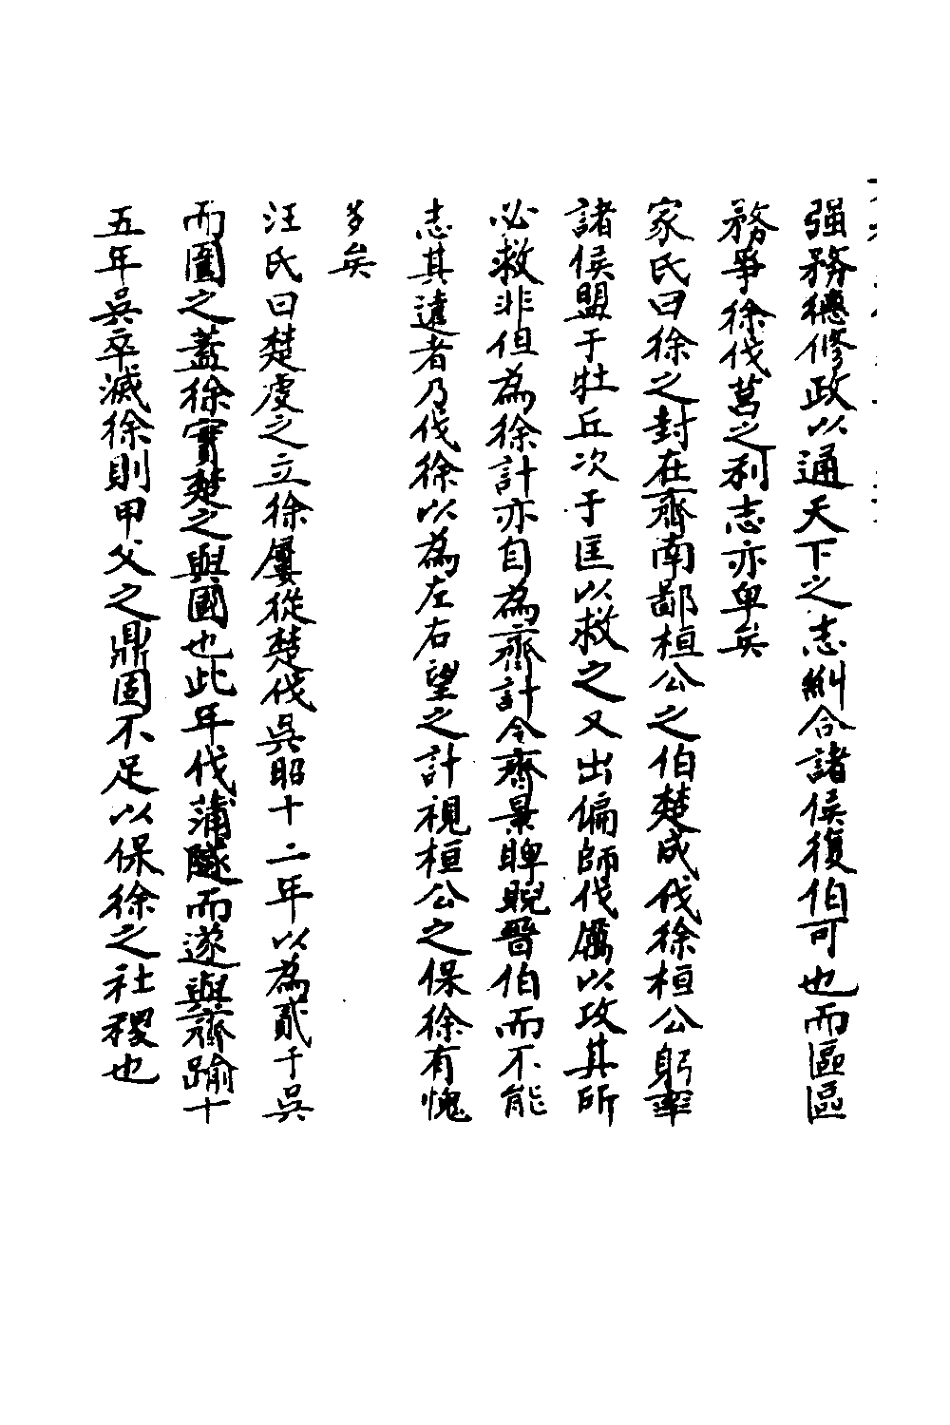 强務德修政以通天下之志糾合諸侯復伯可也而區區
務爭徐伐莒之利志亦卑矣
家氏曰徐之封在齊南鄙桓公之伯楚成伐徐桓公躬率
諸侯盟于牡丘次于匡以救之又出偏師伐厲以攻其所
必救非但為徐計亦自為齊計今齊景睥睨晉伯而不能
志其遠者乃伐徐以為左右望之計視桓公之保徐有愧
多矣
汪氏曰楚虔之立徐屢從楚伐吳昭十二年以為貳于吳
而圍之蓋徐實楚之與國也此年伐蒲隧而遂與齊踰十
五年吳卒滅徐則甲父之鼎固不足以保徐之社稷也